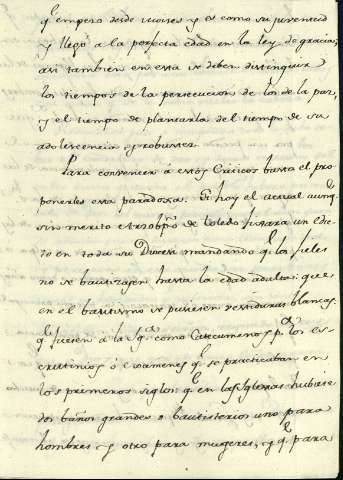 q.e empezo desde moises y es como su juventud
y llegó a la perfecta edad en la ley de gracia;
asi tambien en esta se deben distinguir
los tiempos de la persecucion de los de la paz,
y el tiempo de plantarla del tiempo de su
adolescencia y robustez.
Para convencer á estos Criticos basta el pro
ponerles esta paradoxa. Si hoy el actual aunq.e
sin merito Arzobpõ de Toledo fixara un edic
to en toda su Diocesi mandando q.e los fieles
no se bautizasen hasta la edad adulta: que
en el bautismo se pusiesen vestiduras blancas,
q.e fuesen á la Yg.a como Catecumenos p.a los es
crutinios ó examenes q.e se practicaban en
los primeros siglos: q.e en las Yglesias hubiese
dos baños grandes o bautisterios uno para
hombres y otro para mugeres, y q.e para